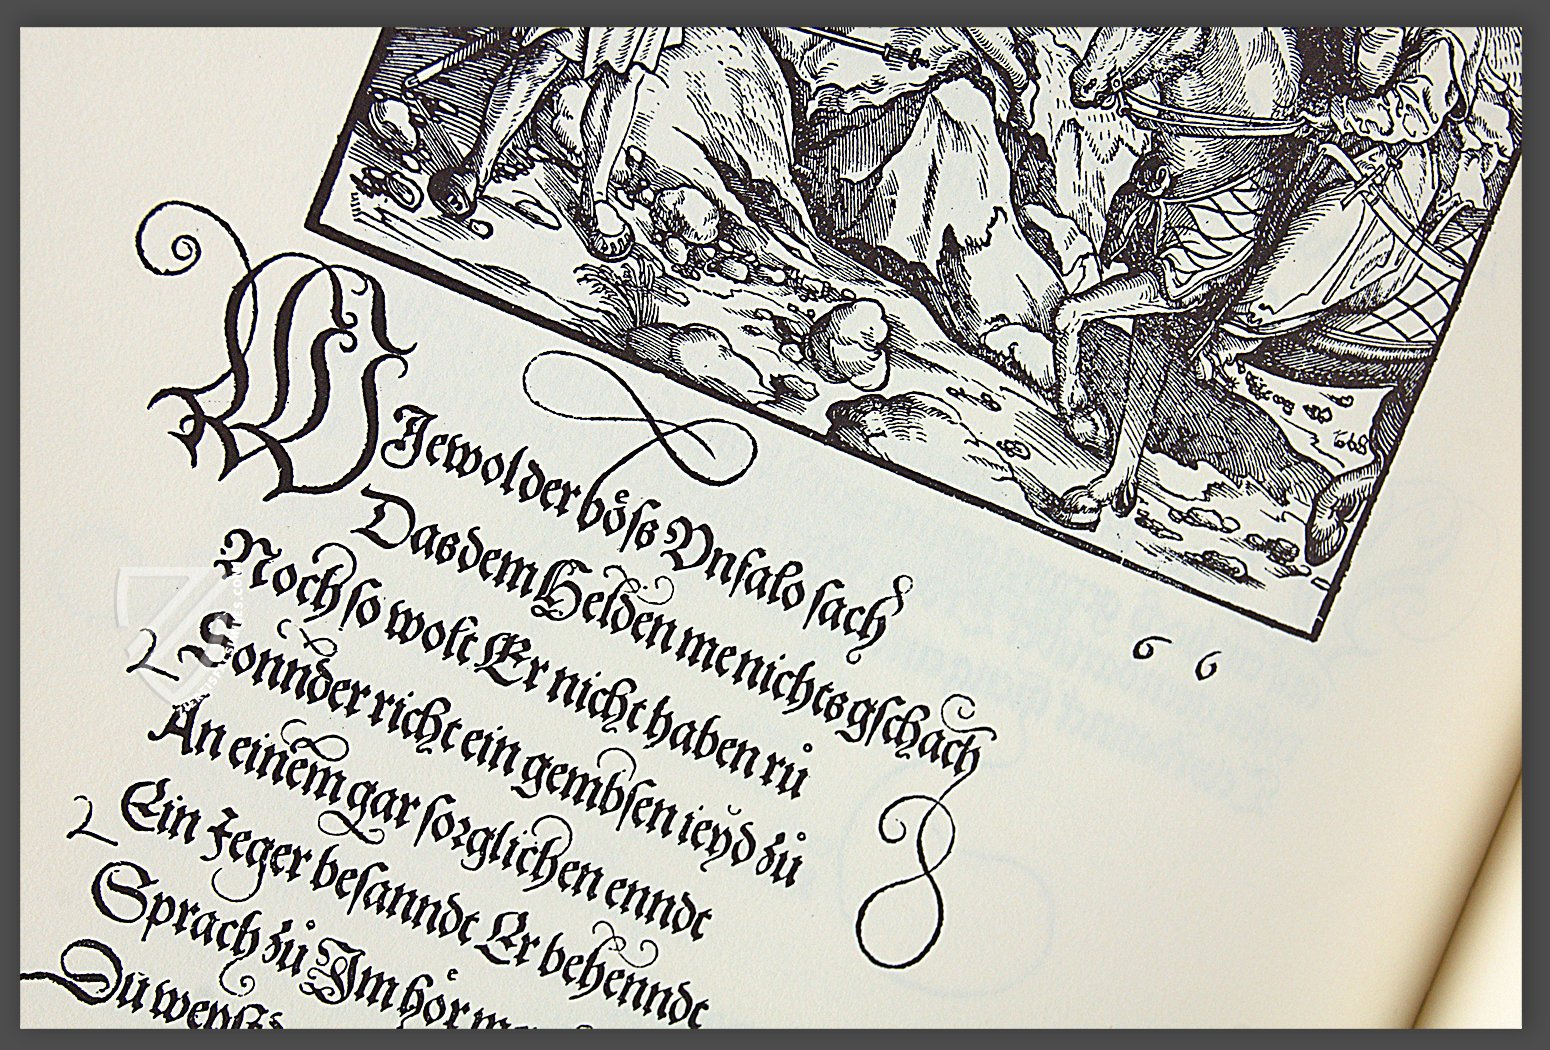 66
WIewol der böss Unfalo sach
Das dem Helden me nichts gschach
Noch so wolt Er nicht haben rů
Sonnder richt ein gembsen ieyd zů
An einem gar sorglichen enndt
Ein Jeger besanndt Er behenndt
Sprach zů Im hör
Dů weyst